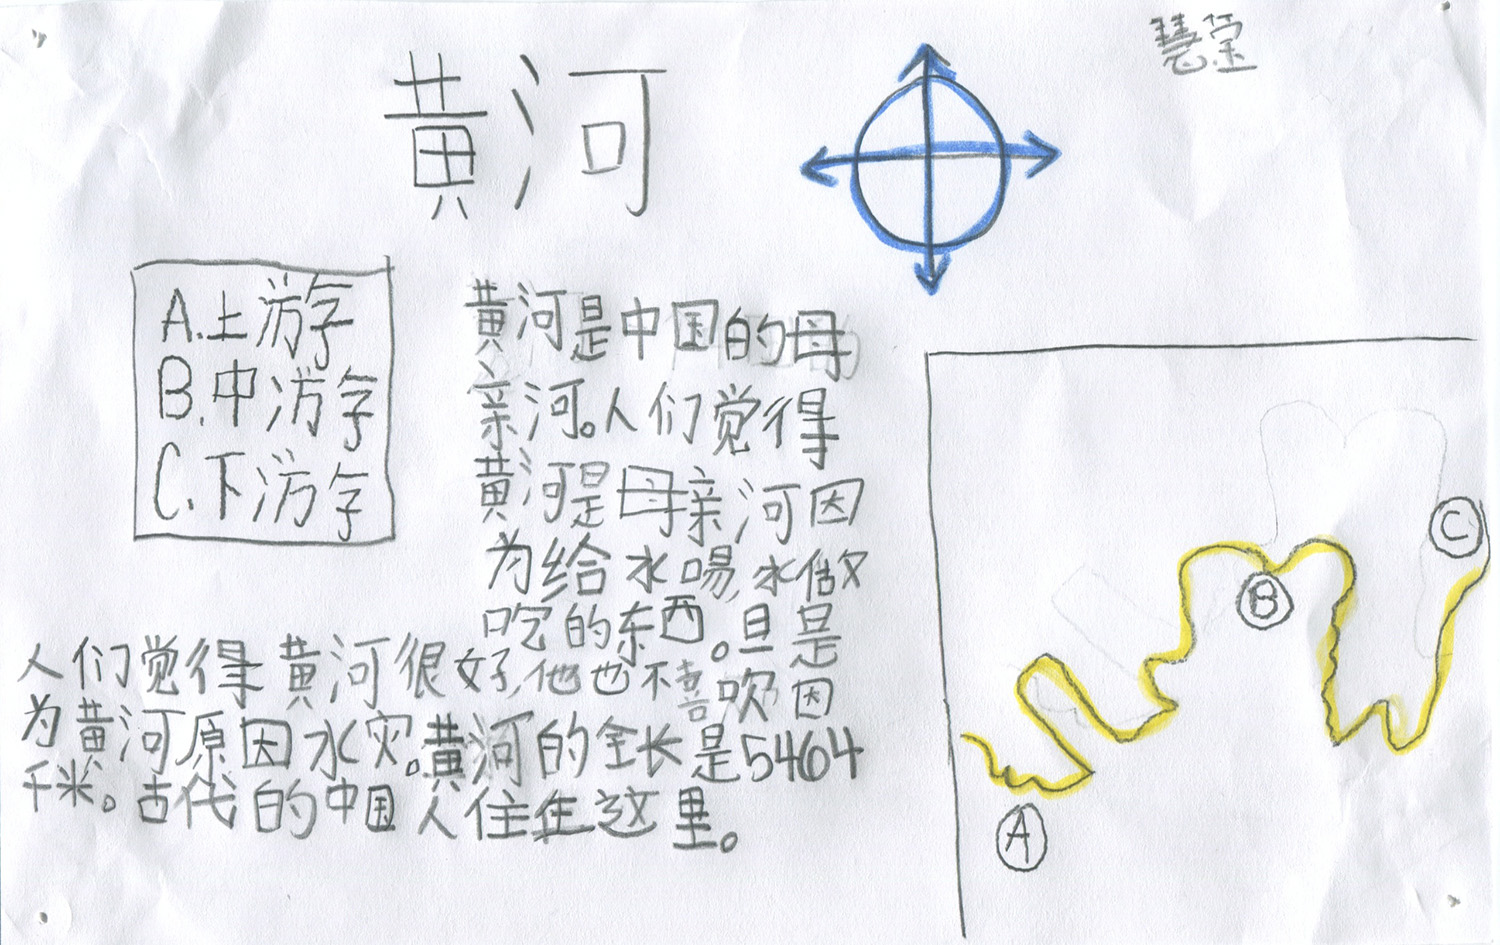 慧莹
黄河
A.上游字
B.中游字
C.下游字
黄河是中国的母
亲河。人们觉得
黄河是母亲河因
为给水喝,水做
吃的东西。但是
人们觉得黄河很好,他也不喜欢因
为黄河原因水灾。黄河的全长是5464
千米。古代的中国人住在这里。
A
B
C